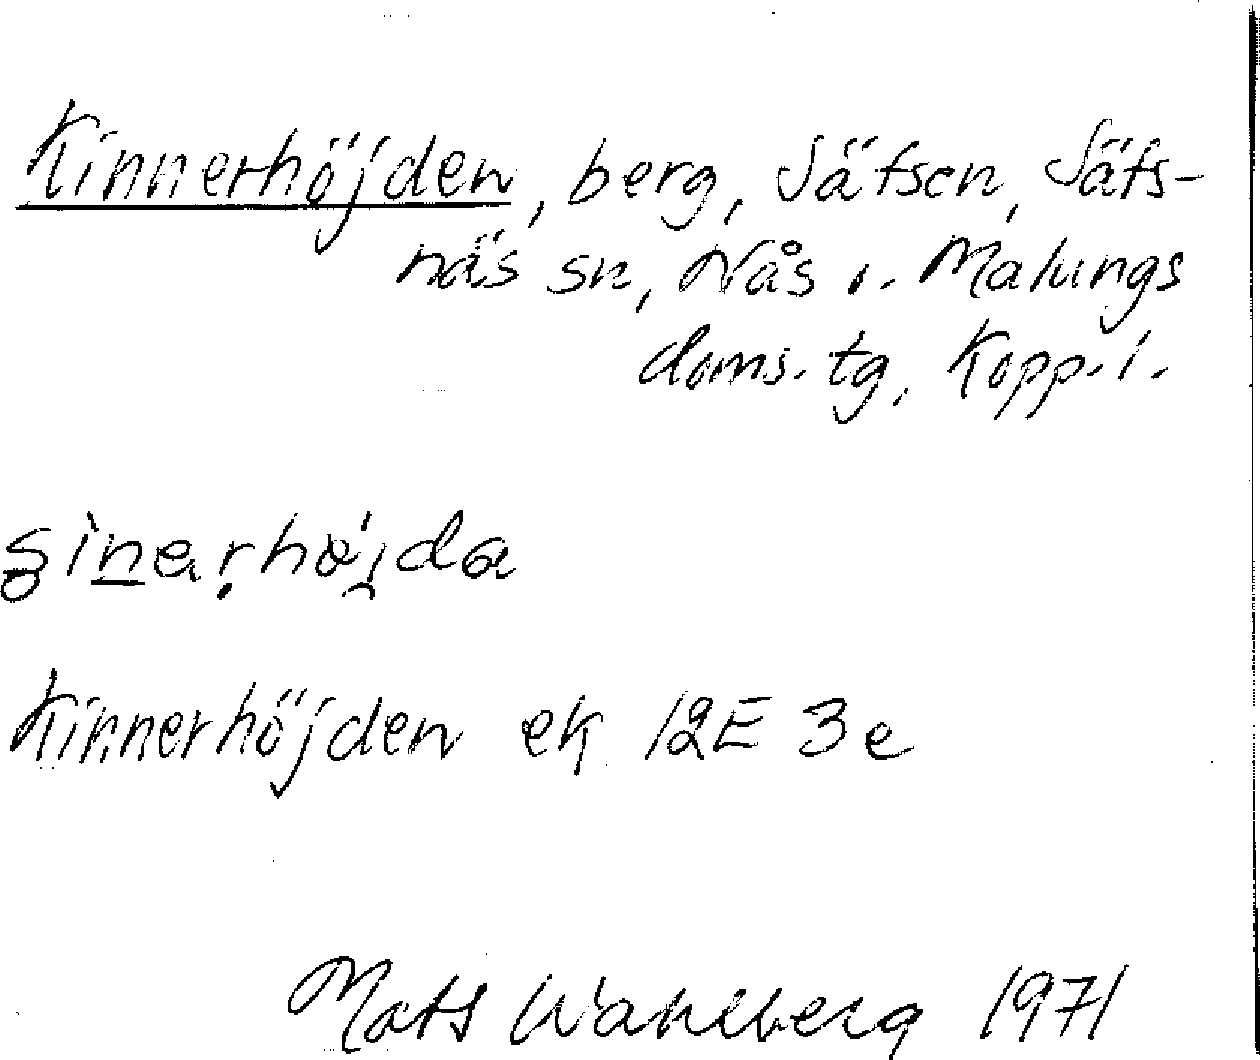 Kinnerhöjden, berg, Säfsen, Säfs-
näs sn, Nås o. Malungs
doms. tg, Kopp. l.
Kinnerhöjden ek 12E 3e
Mats Wahlberg 1971